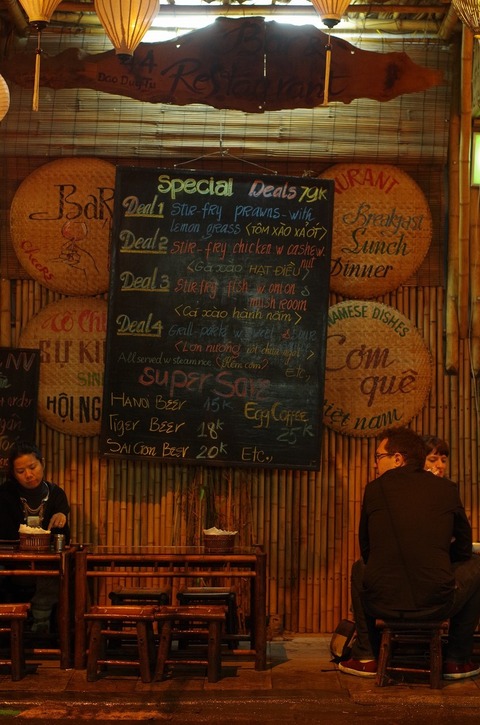 BAR
4A
Dao Duy Tu
Restaurant
Special Deals 79K
Deal 1 Stir-fry prawns with
lemon grass <TÔM XÀO XẢ ỚT>
Deal 2 Stir-fry chicken w cashew
nut
<Gà xào HẠT ĐIỀU>
Deal 3 Stir-fry fish w onion &
mushroom
<Cá xào hành nấm>
Deal 4
<Lợn nướng
All served w steam rice <Kèm cơm> Etc.,
Super Save
Hanoi Beer 15K Egg Coffee
Tiger Beer 18K 25K
SaiGon Beer 20K Etc.,
BaR
Cheers
SỰ KI
SIN
HỘI NG
URANT
Breakfast
Lunch
Dinner
NAMESE DISHES
Cơm
quê
Việt nam
NV